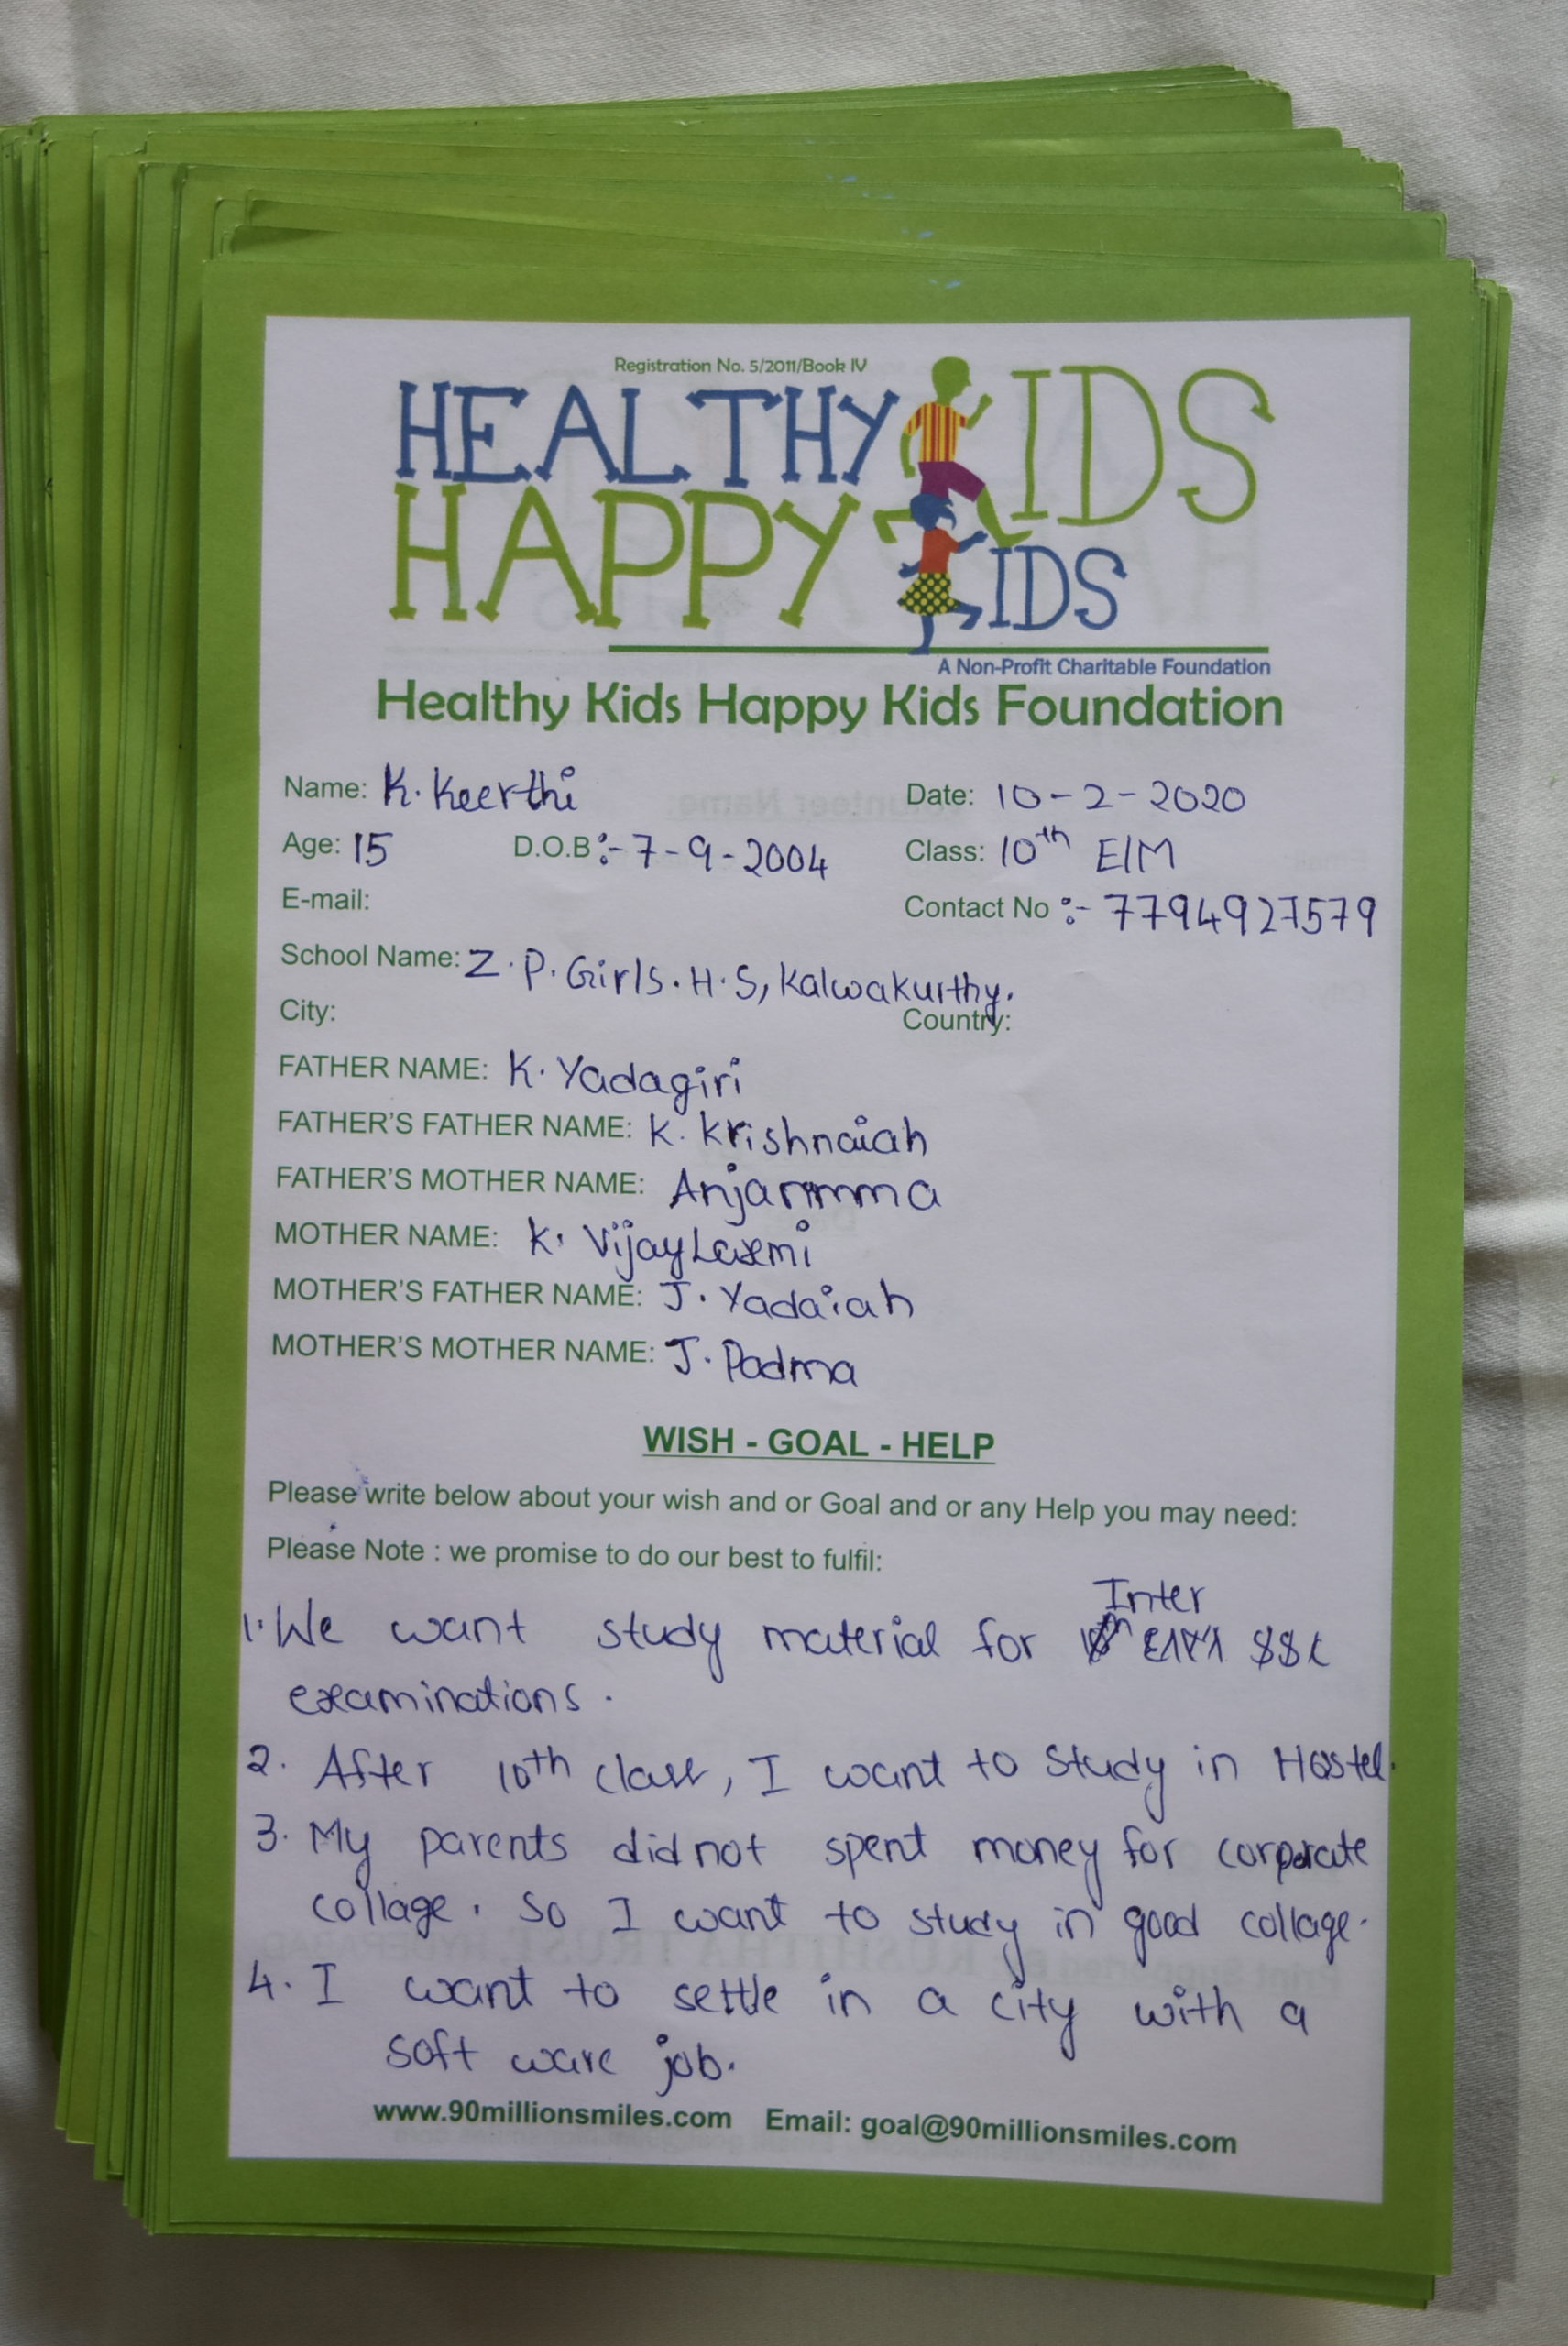 Registration No. 5/2011/Book IV
HEALTHY KIDS
HAPPY KIDS
A Non-Profit Charitable Foundation
Healthy Kids Happy Kids Foundation
Name: K. Keerthi Date: 10-2-2020
Age: 15 D.O.B :- 7-9-2004 Class: 10th E/M
E-mail: Contact No :- 7794927579
School Name: Z.P. Girls. H.S, Kalwakurthy.
City: Country:
FATHER NAME: K. Yadagiri
FATHER'S FATHER NAME: K. Krishnaiah
FATHER'S MOTHER NAME: Anjanmma
MOTHER NAME: K. VijayLaxmi
MOTHER'S FATHER NAME: J. Yadaiah
MOTHER'S MOTHER NAME: J. Padma
WISH - GOAL - HELP
Please write below about your wish and or Goal and or any Help you may need:
Please Note : we promise to do our best to fulfil:
1. We want study material for Inter
examinations.
2. After 10th class, I want to study in Hostel.
3. My parents did not spent money for corporate
collage. So I want to study in good collage.
4. I want to settle in a city with a
soft ware job.
www.90millionsmiles.com Email: goal@90millionsmiles.com